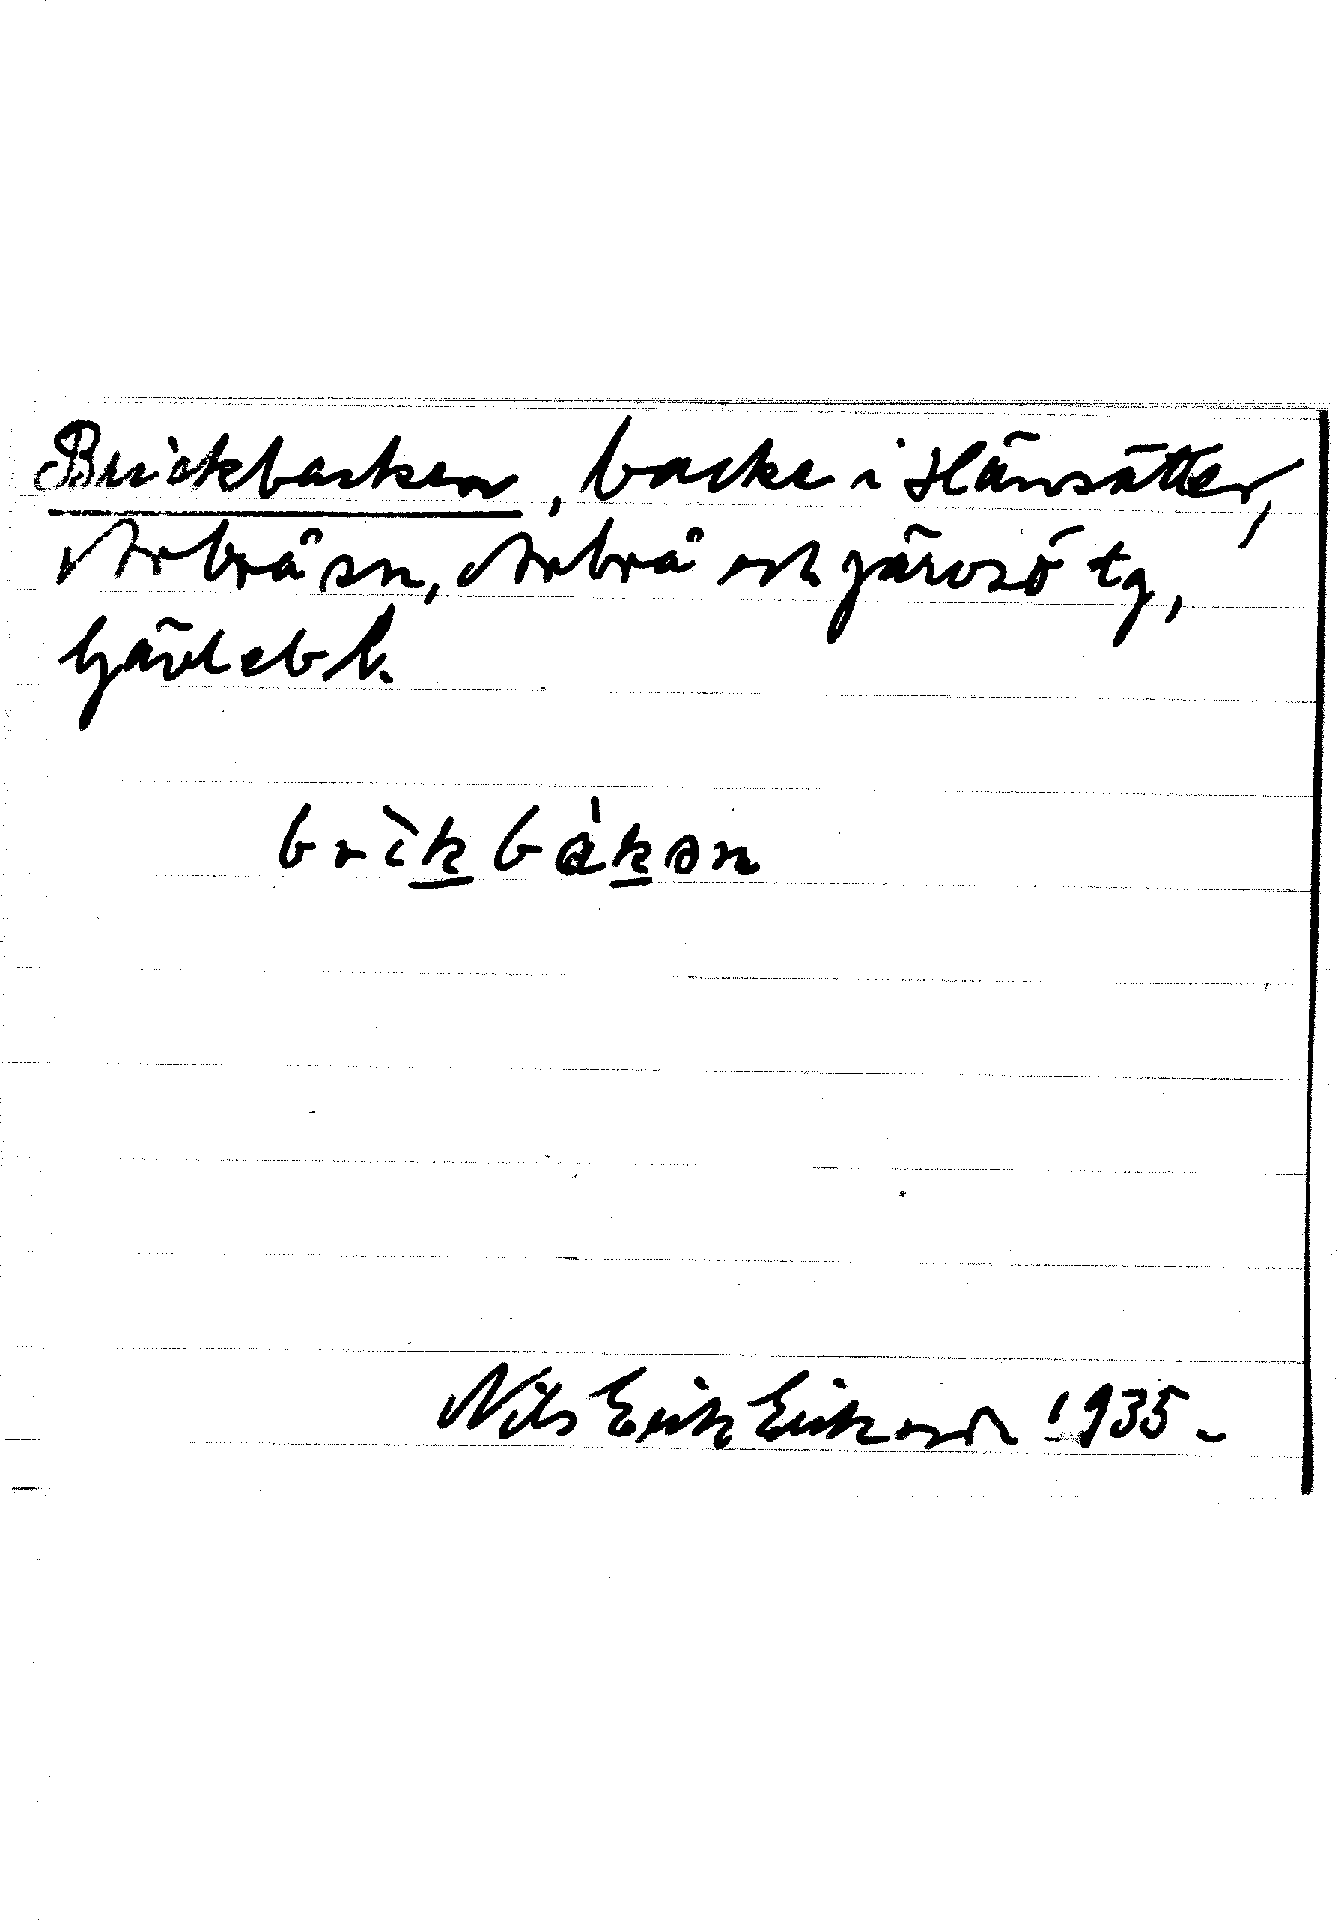 Brickbacken, backe i Hänsätter,
Arbrå sn, Arbrå och Järvsö tg,
Gävlebl.
brìkbákən
Nils Erik Eriksson 1935.